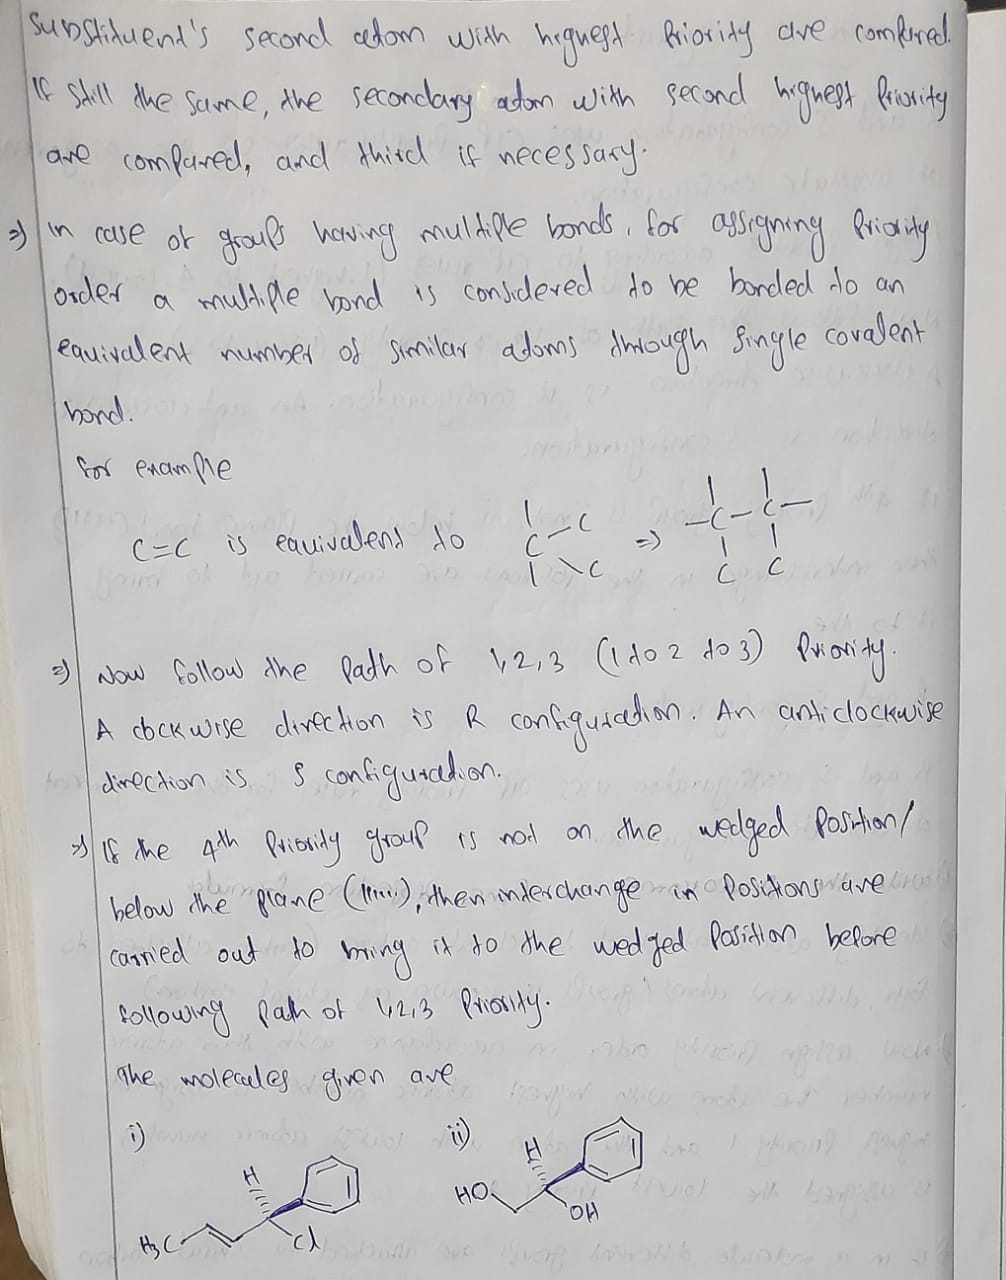 Substituent's second atom with highest Priority are compared.
If still the same, the secondary atom with second highest Priority
are compared, and third if necessary.
=> In case of groups having multiple bonds, for assigning Priority
order a multiple bond is considered to be bonded to an
equivalent number of similar atoms through single covalent
bond.
for example
C=C is equivalent to C-C C => -C-C- C C
=> Now follow the Path of 1,2,3 (1 to 2 to 3) Priority.
A clockwise direction is R configuration. An anticlockwise
direction is S configuration.
=> If the 4th Priority group is not on the wedged Position/
below the plane ('''''), then interchange in Positions are
carried out to bring it to the wedged Position before
following Path of 1,2,3 Priority.
The molecules given are
i) ii)
H H
HO OH
H3C Cl